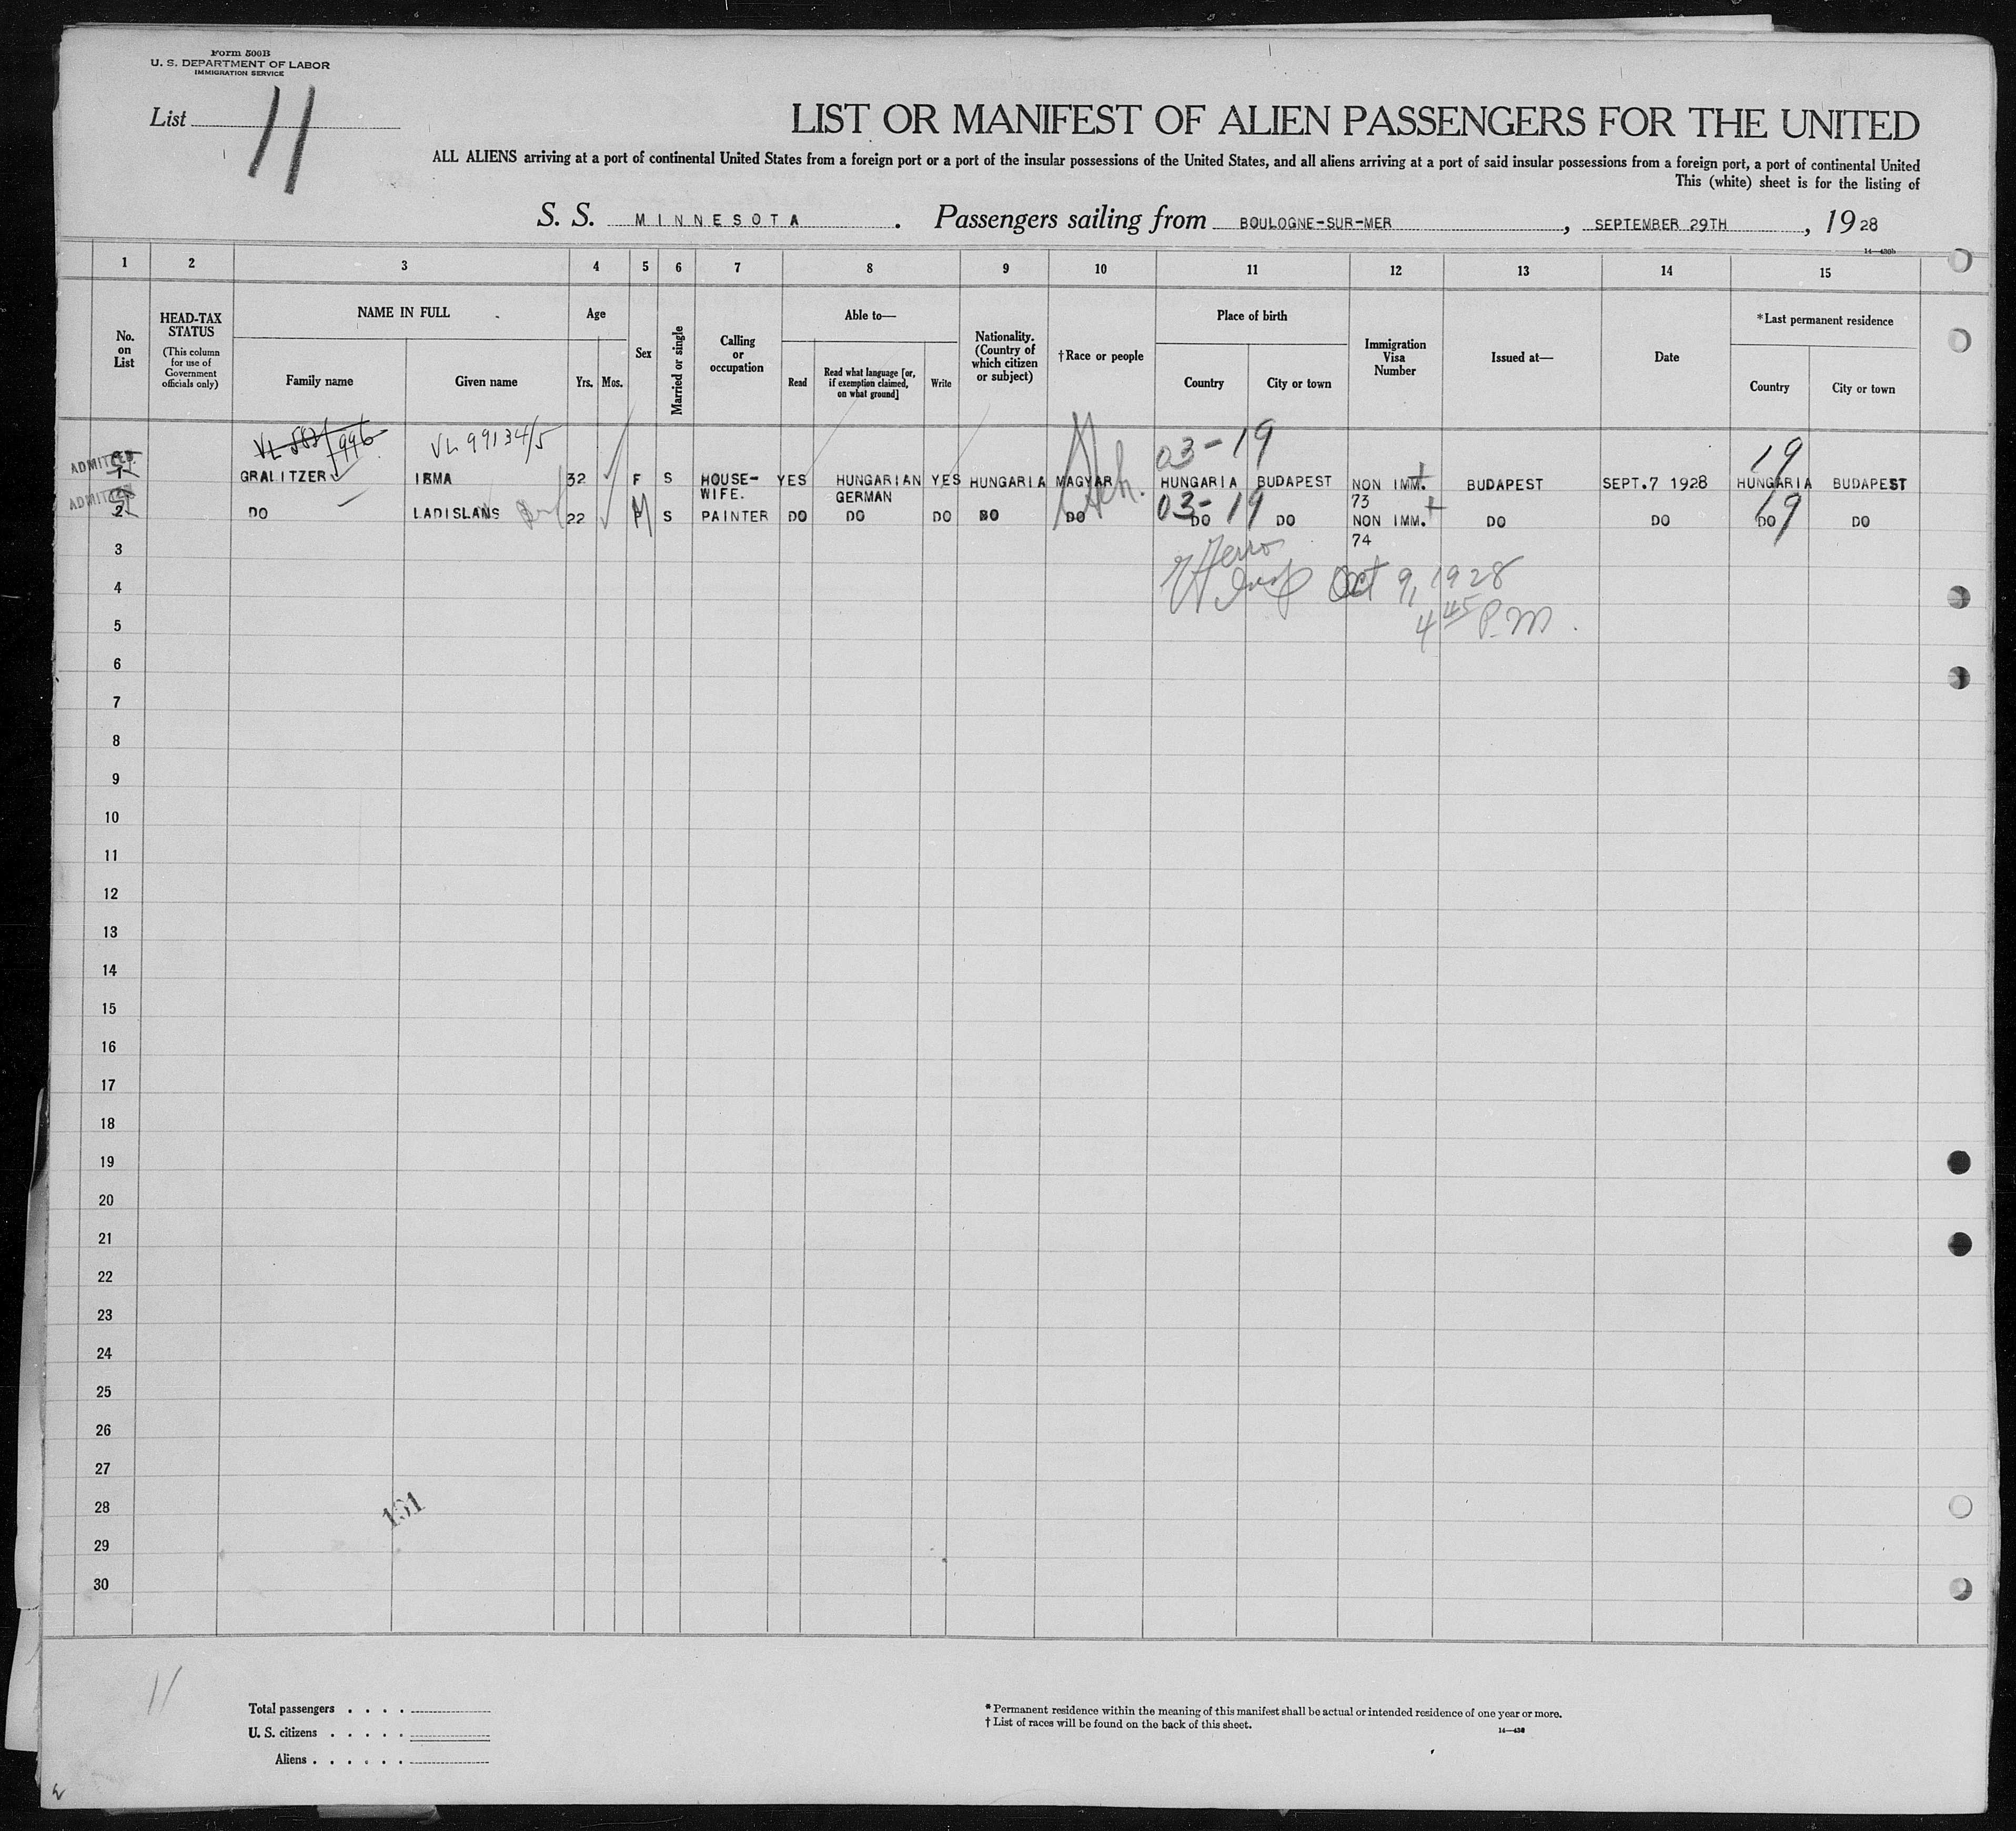 Form 500B
U. S. DEPARTMENT OF LABOR
IMMIGRATION SERVICE
List 11
LIST OR MANIFEST OF ALIEN PASSENGERS FOR THE UNITED
ALL ALIENS arriving at a port of continental United States from a foreign port or a port of the insular possessions of the United States, and all aliens arriving at a port of said insular possessions from a foreign port, a port of continental United
This (white) sheet is for the listing of
S. S. MINNESOTA. Passengers sailing from BOULOGNE-SUR-MER, SEPTEMBER 29TH, 1928
14—430b
1 2 3 4 5 6 7 8 9 10 11 12 13 14 15
No. on List
HEAD-TAX STATUS
(This column for use of Government officials only)
NAME IN FULL
Family name
Given name
Age
Yrs. Mos.
Sex
Married or single
Calling or occupation
Able to—
Read
Read what language [or, if exemption claimed, on what ground]
Write
Nationality. (Country of which citizen or subject)
†Race or people
Place of birth
Country
City or town
Immigration Visa Number
Issued at—
Date
*Last permanent residence
Country
City or town
VL 99134/5 03-19 19
ADMITTED
1 GRALITZER IRMA 32 F S HOUSE- YES HUNGARIAN YES HUNGARIA MAGYAR HUNGARIA BUDAPEST NON IMM. BUDAPEST SEPT.7 1928 HUNGARIA BUDAPEST
WIFE. GERMAN 73
ADMITTED 03-19 19
2 DO LADISLANS 22 M S PAINTER DO DO DO DO DO DO DO NON IMM. DO DO DO DO
74
3
4 Insp Oct 9, 1928
5 4 45 P.M.
6
7
8
9
10
11
12
13
14
15
16
17
18
19
20
21
22
23
24
25
26
27
28
29
30
11
Total passengers . . . .
U. S. citizens . . . . .
Aliens . . . . . .
* Permanent residence within the meaning of this manifest shall be actual or intended residence of one year or more.
† List of races will be found on the back of this sheet.
14—430